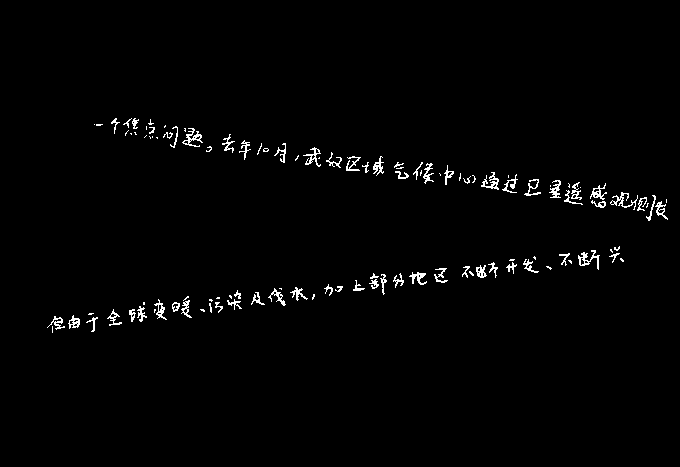 一个焦点问题。去年10月,武汉区域气候中心通过卫星遥感观测发
但由于全球变暖、污染及伐水,加上部分地区不断开发、不断兴